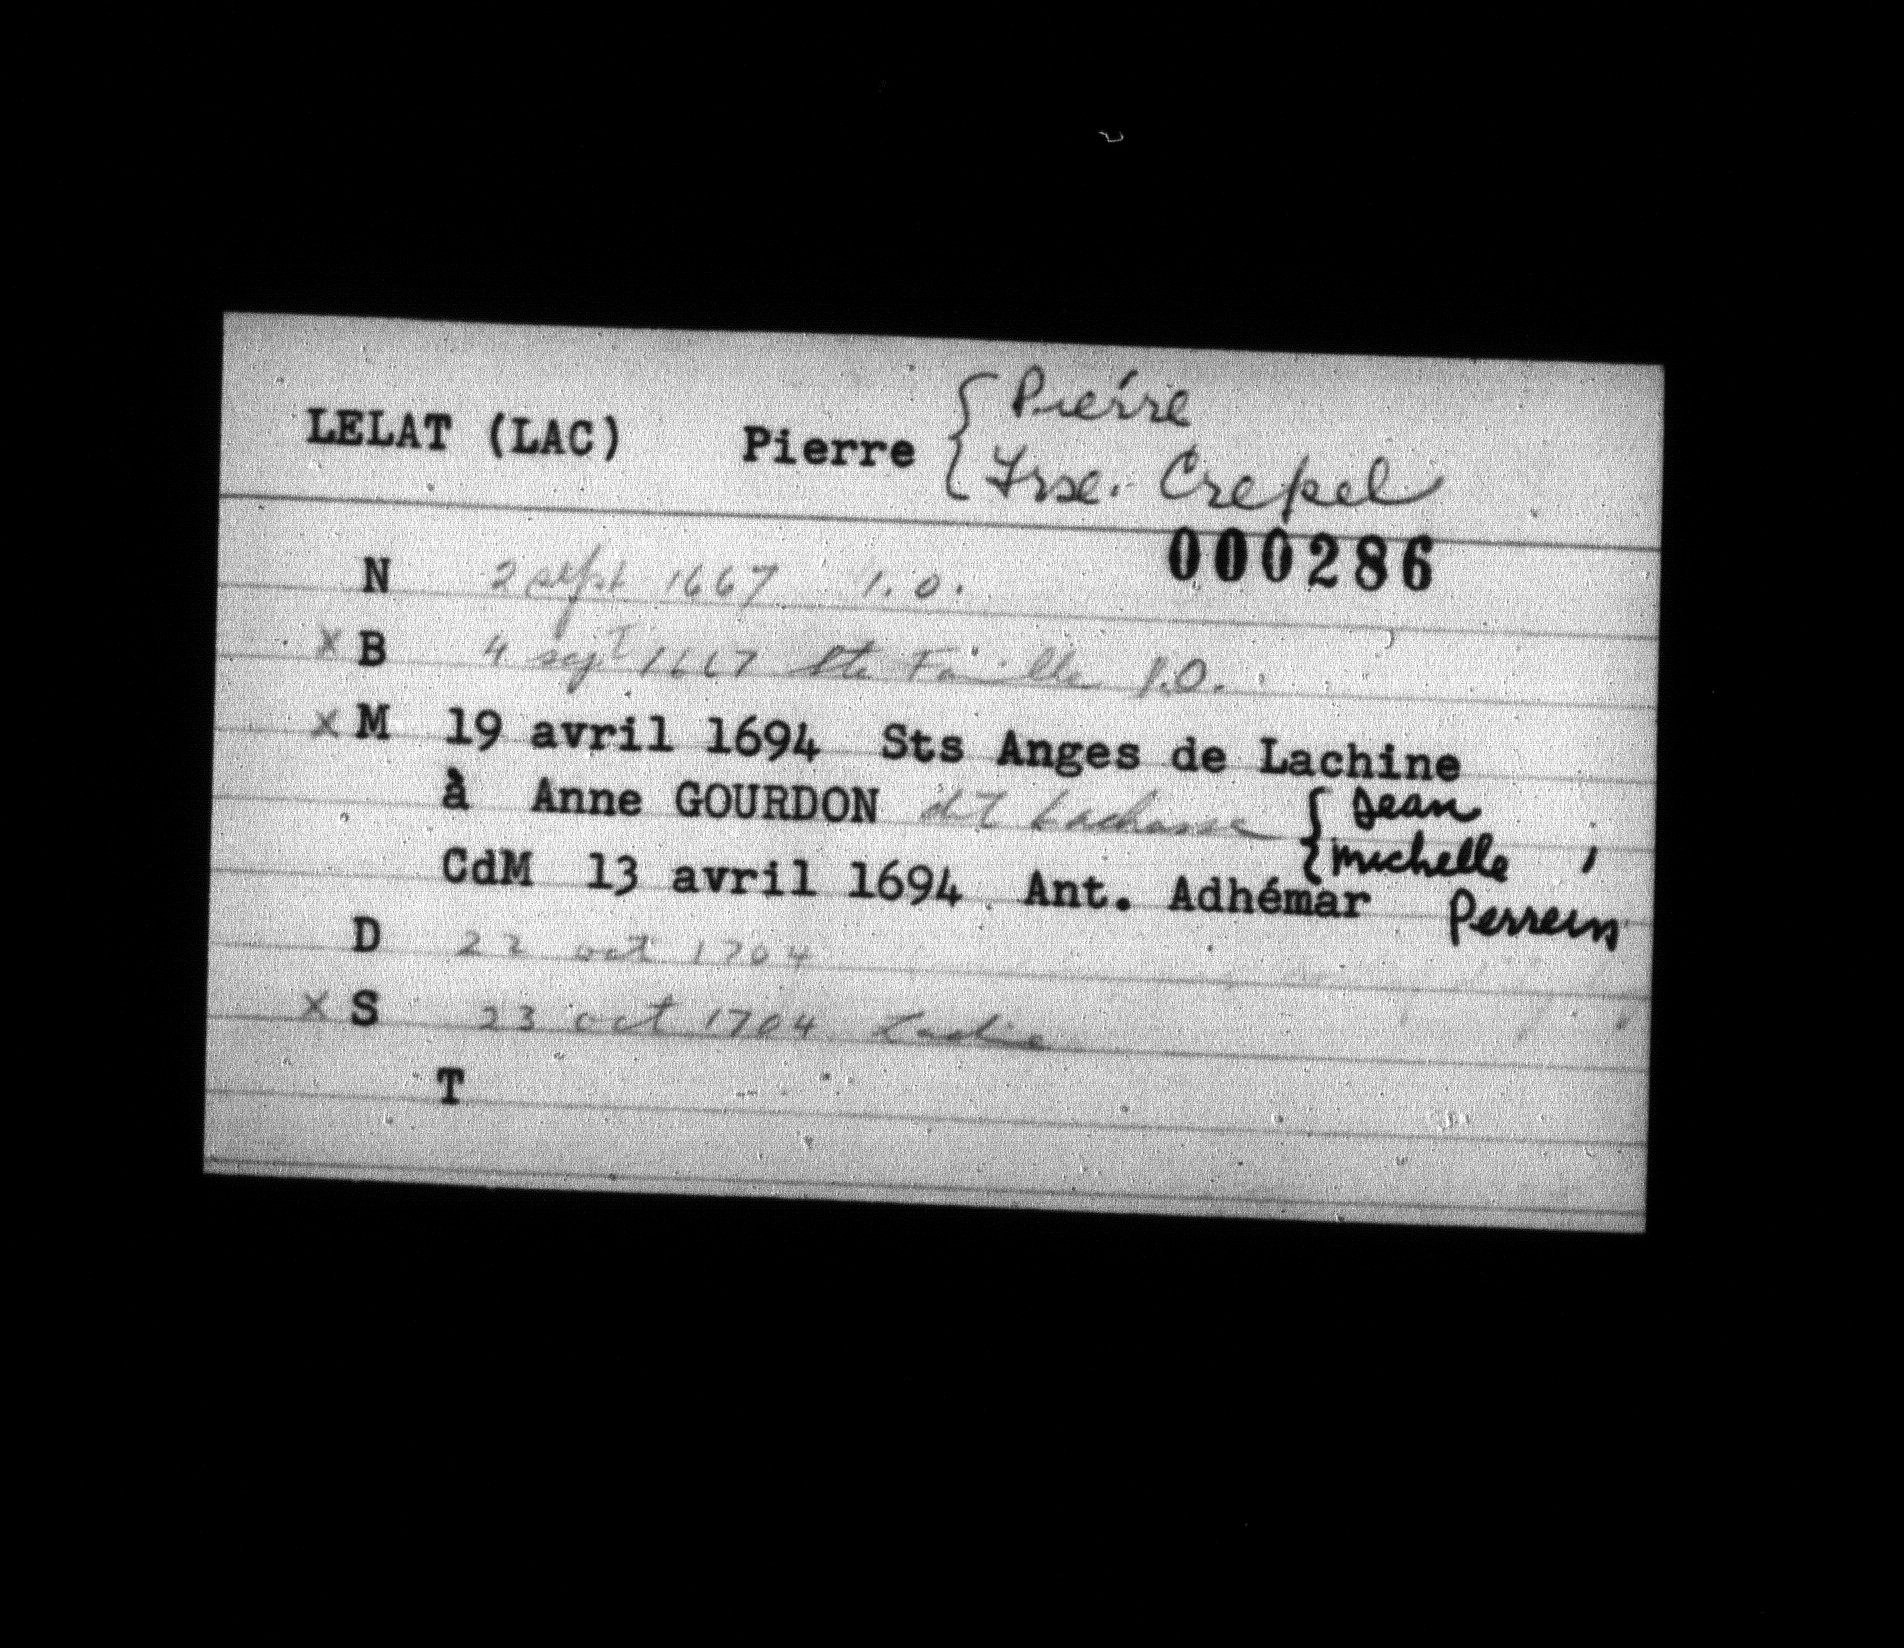 LELAT (LAC) Pierre { Pierre
{ Frse. Crepel
000286
N 2 sept 1667 I.O.
x B 4 sept 1667 Ste Famille I.O.
x M 19 avril 1694 Sts Anges de Lachine
à Anne GOURDON dit Lachasse { Jean
{ Michelle
CdM 13 avril 1694 Ant. Adhémar Perrein
D 22 oct 1704
x S 23 oct 1704 Lachine
T